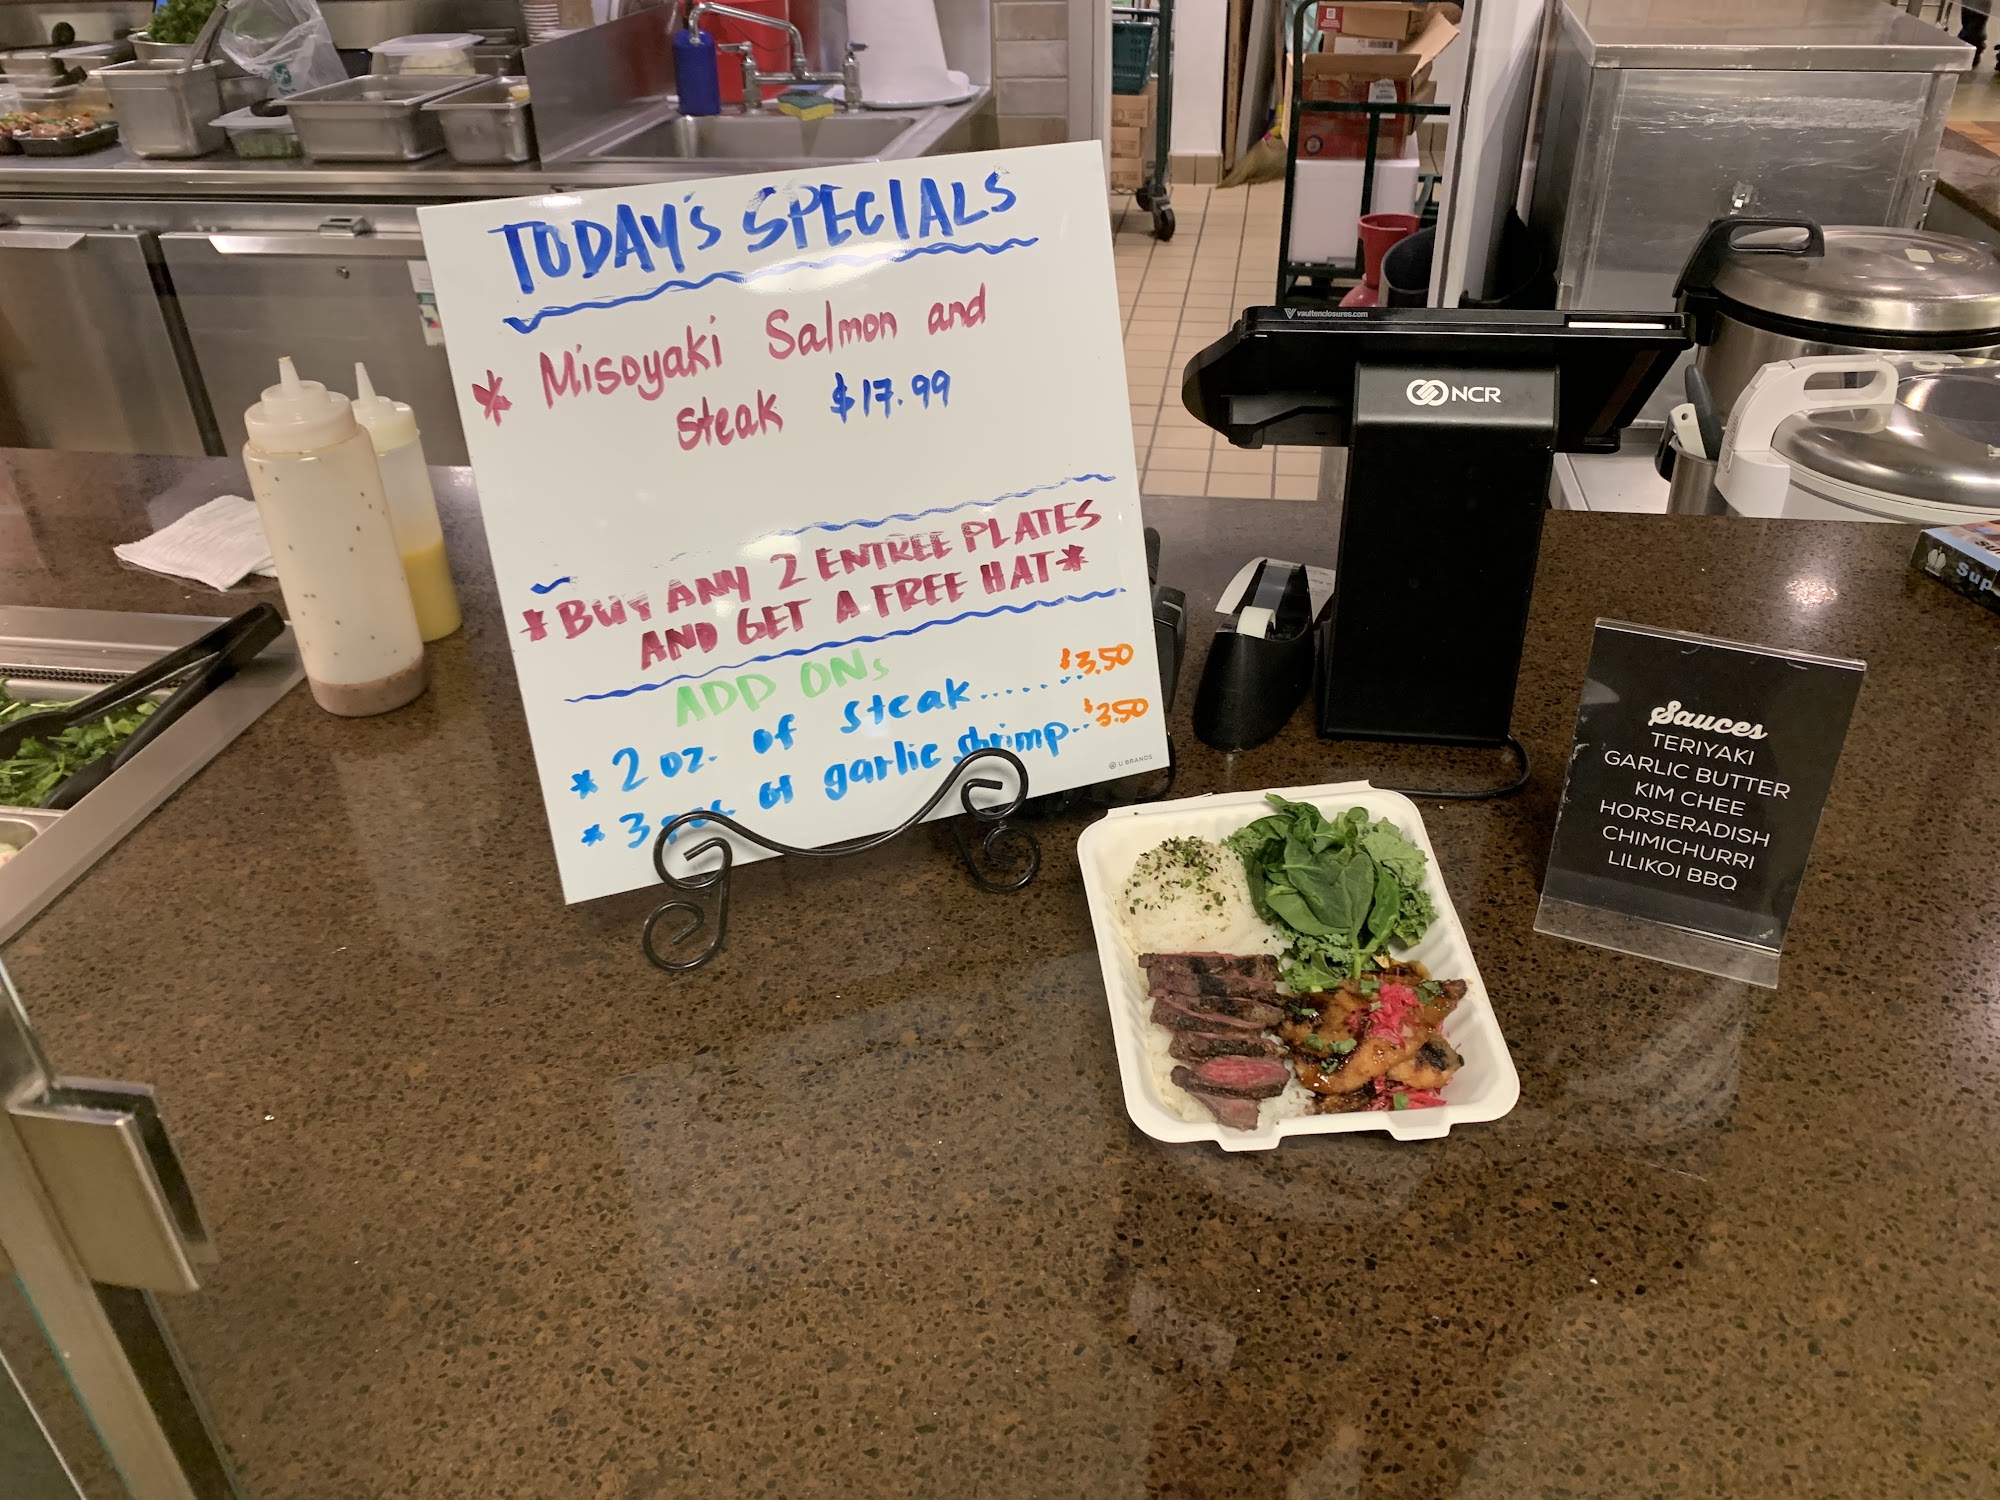 TODAY'S SPECIALS
* Misoyaki Salmon and
steak $17.99
*BUY ANY 2 ENTREE PLATES
AND GET A FREE HAT*
ADD ONs
* 2 oz. of steak....... $3.50
* 3 of garlic shrimp.. $3.50
@ U BRANDS
vaultenclosures.com
NCR
Sauces
TERIYAKI
GARLIC BUTTER
KIM CHEE
HORSERADISH
CHIMICHURRI
LILIKOI BBQ